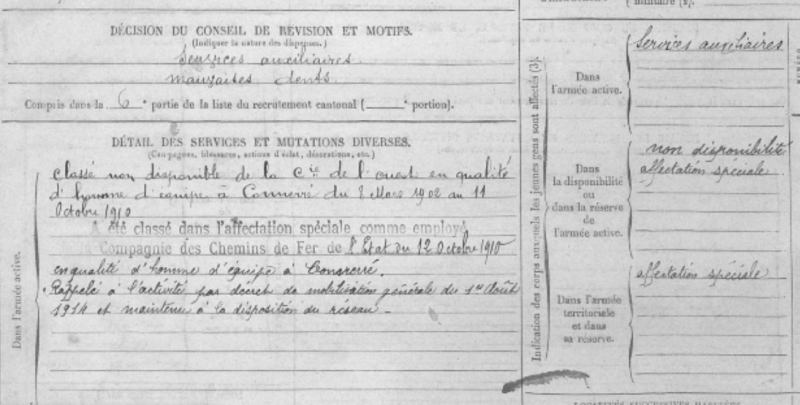 DÉCISION DU CONSEIL DE RÉVISION ET MOTIFS.
(Indiquer la nature des dispenses.)
Services auxiliaires
mauvaises dents
Compris dans la 6e partie de la liste du recrutement cantonal ( e portion).
DÉTAIL DES SERVICES ET MUTATIONS DIVERSES.
(Campagnes, blessures, actions d'éclat, décorations, etc.)
Classé non disponible de la Cie de l'ouest en qualité
d'homme d'équipe à Connerré du 8 Mars 1902 au 11
Octobre 1910
A été classé dans l'affectation spéciale comme employé
la Compagnie des Chemins de Fer de l'Etat du 12 Octobre 1910
en qualité d'homme d'équipe à Connerré.
Rappelé à l'activité par décret de mobilisation générale du 1er Août
1914 et maintenu à la disposition du réseau.
Dans l'armée active.
militaire (2).
Indication des corps auxquels les jeunes gens sont affectés (3).
Dans
l'armée active.
Services auxiliaires
Dans
la disponibilité
ou
dans la réserve
de
l'armée active.
non disponibilité
affectation spéciale
Dans l'armée
territoriale
et dans
sa réserve.
affectation spéciale
LOCALITÉS SUCCESSIVES HABITÉES